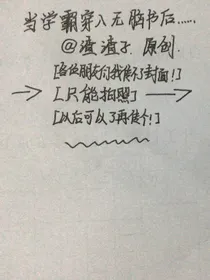 当学霸穿入无脑书后……
@渣渣子 原创.
[各位朋友们我换不了封面!]
→ [只能拍照] →
[以后可以了再换个!]